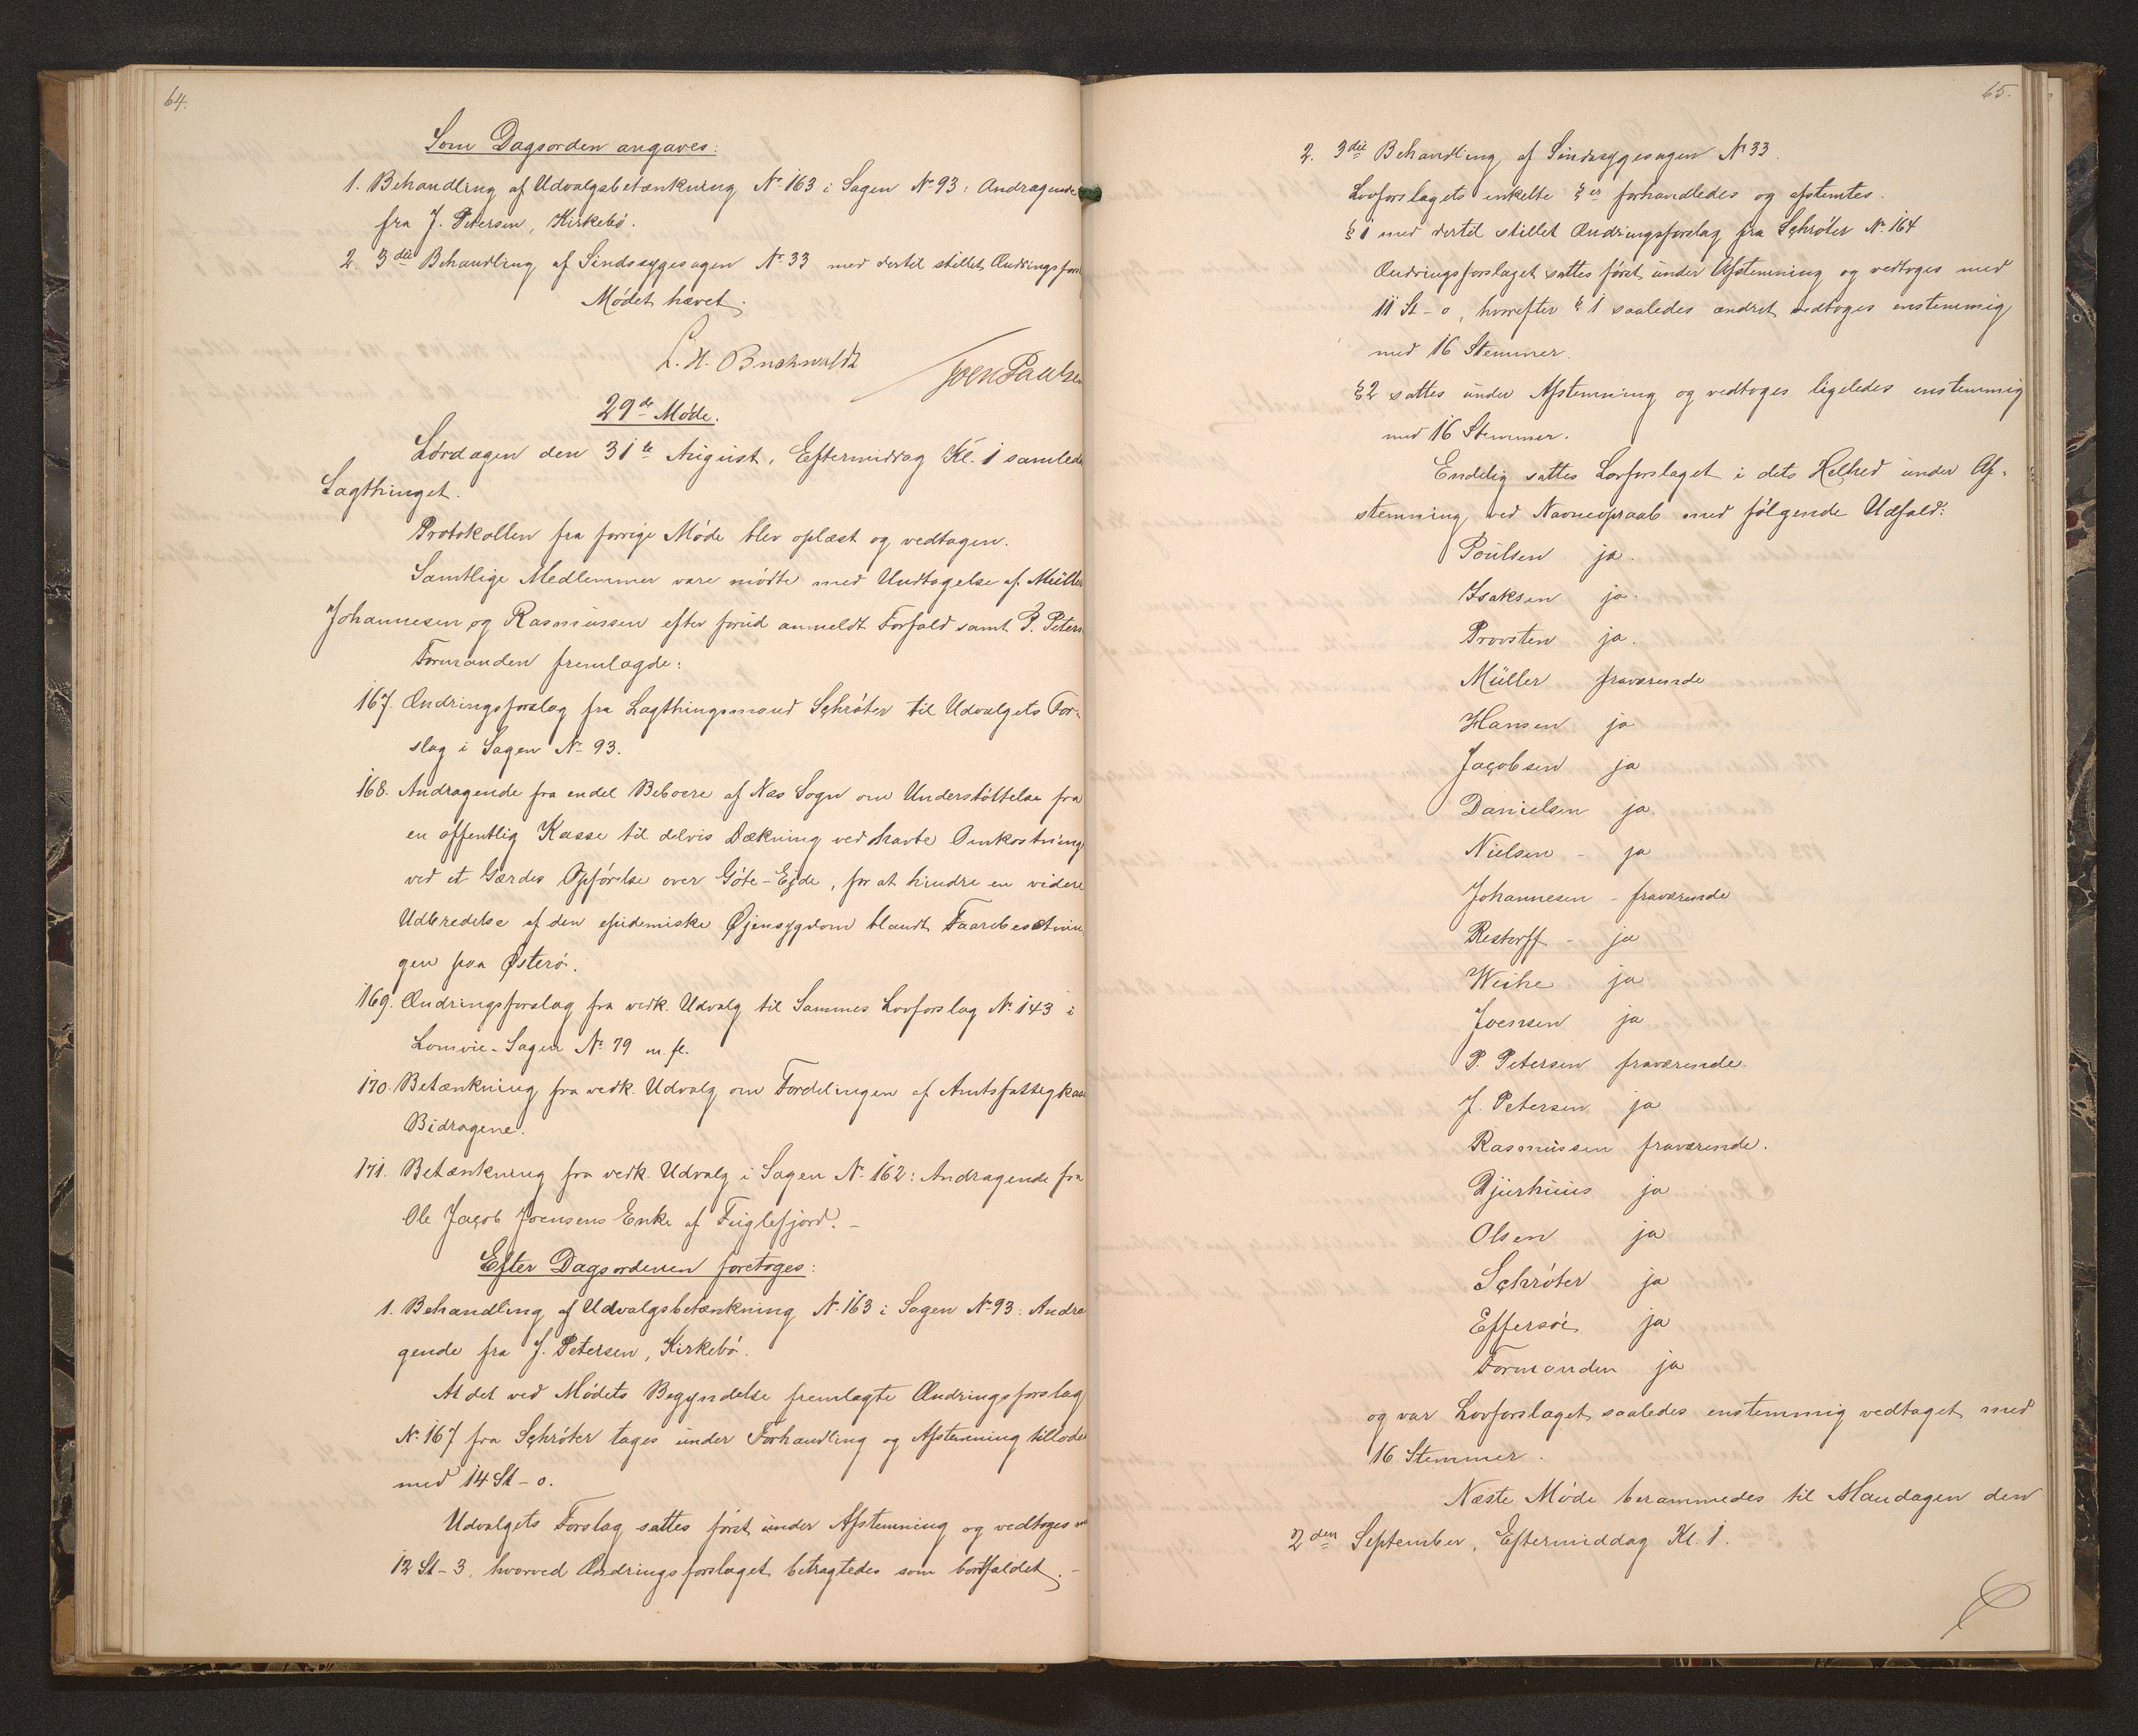 64.
Som Dagsorden angaves:
1. Behandling af Udvalgsbetænkning No 163 i Sagen No 93: Andragende
fra J. Petersen, Kirkebø.
2. 3die Behandling af Sindssygesagen No 33 med dertil stillet Ændringsfors
Mødet hævet.
L. H. Buchwaldt
Joen Paulsen
29de Møde.
Lørdagen den 31te August, Eftermiddag Kl. 1 samlede
Lagthinget.
Protokollen fra forrige Møde blev oplæst og vedtagen.
Samtlige Medlemmer vare mødte med Undtagelse af Müller
Johannesen og Rasmussen efter forud anmeldt Forfald samt P. Peters
Formanden fremlagde:
167. Ændringsforslag fra Lagthingsmand Schrøter til Udvalgets For-
slag i Sagen No 93.
168. Andragende fra endel Beboere af Næs Sogn om Understøttelse fra
en offentlig Kasse til delvis Dækning ved havte Omkostning
ved et Gærdes Opførelse over Gøte-Ejde, for at hindre en videre
Udbredelse af den epidemiske Øjensygdom blandt Faarebesætnin
gen paa Østerø.
169. Ændringsforslag fra vedk. Udvalg til Sammes Lovforslag No 143 i
Lomvie-Sagen No 79 m. fl.
170. Betænkning fra vedk. Udvalg om Fordelingen af Amtsfattigkas
Bidragene.
171. Betænkning fra vedk. Udvalg i Sagen No 162: Andragende fra
Ole Jacob Joensens Enke af Fuglefjord. -
Efter Dagsordenen foretoges:
1. Behandling af Udvalgsbetænkning No 163 i Sagen No 93: Andra
gende fra J. Petersen, Kirkebø.
At det ved Mødets Begyndelse fremlagte Ændringsforslag
No 167 fra Schrøter tages under Forhandling og Afstemning tillodes
med 14 St - 0.
Udvalgets Forslag sattes først under Afstemning og vedtoges m
12 St - 3, hvorved Ændringsforslaget betragtedes som bortfaldet. -
65.
2. 3die Behandling af Sindssygesagen No 33.
Lovforslagets enkelte §er forhandledes og afstemtes.
§ 1 med dertil stillet Ændringsforslag fra Schrøter No 164
Ændringsforslaget sattes først under Afstemning og vedtoges med
11 St - 0, hvorefter § 1 saaledes ændret vedtoges enstemmig
med 16 Stemmer.
§ 2 sattes under Afstemning og vedtoges ligeledes enstemmig
med 16 Stemmer.
Endelig sattes Lovforslaget i dets Helhed under Af-
stemning ved Navneopraab med følgende Udfald:
Poulsen ja.
Isaksen ja.
Provsten ja.
Müller fraværende
Hansen ja
Jacobsen ja
Danielsen ja.
Nielsen - ja
Johannesen - fraværende
Restorff - ja
Weihe ja
Joensen ja
P. Petersen fraværende
J. Petersen ja
Rasmussen fraværende.
Djurhuus ja
Olsen ja
Schrøter ja
Effersøe ja
Formanden ja
og var Lovforslaget saaledes enstemmig vedtaget med
16 Stemmer.
Næste Møde berammedes til Mandagen den
2den September, Eftermiddag Kl. 1.